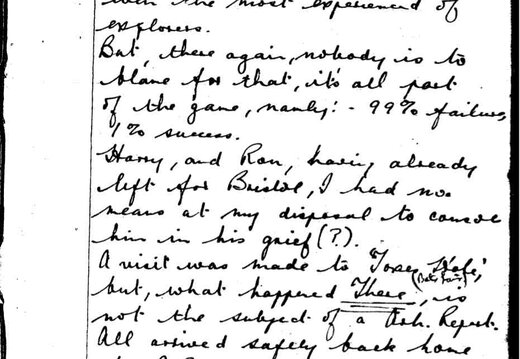 with the most experienced of
explorers.
But, there again, nobody is to
blame for that, it's all part
of the game, namely:- 99% failure,
1% success.
Harry, and Ron, having already
left for Bristol, I had no
means at my disposal to console
him in his grief (?).
A visit was made to
but, what happened There, is
not the subject of a Report.
All arrived safely back home